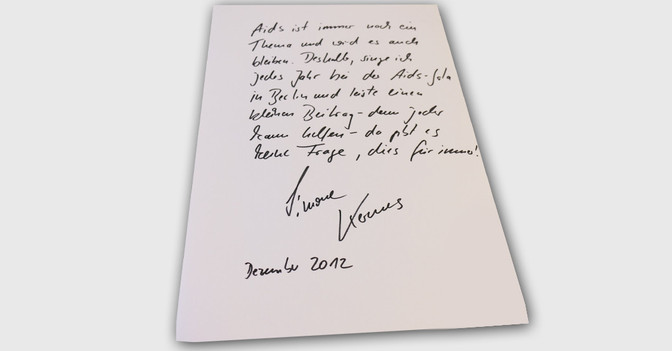 Aids ist immer noch ein
Thema und wird es auch
bleiben. Deshalb, singe ich
jedes Jahr bei der Aids-Gala
in Berlin und leiste einen
kleinen Beitrag – denn jeder
kann helfen – da gibt es
keine Frage, dies für immer!
Simone
Kermes
Dezember 2012